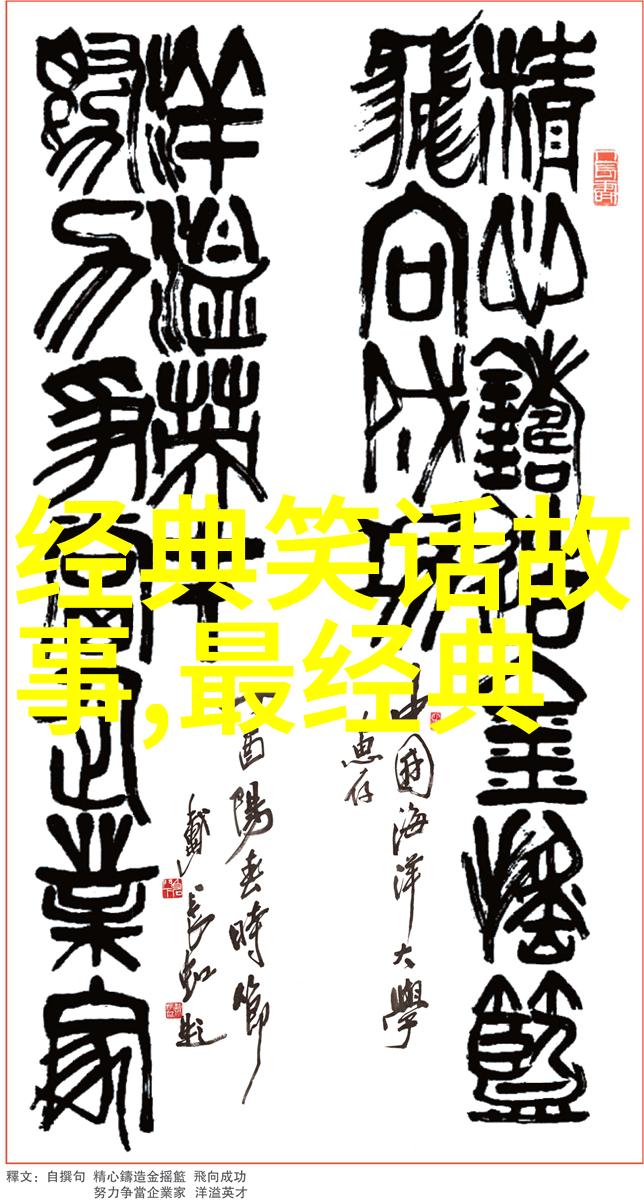 精心鑄造金搖籃
飛向成功
中國海洋大學
惠存
努力爭當企業家
洋溢英才
丁酉陽春時節
戴長虹題
经典笑话故
事,最经典
釋文：自撰句 精心鑄造金摇籃 飛向成功
努力争當企業家 洋溢英才